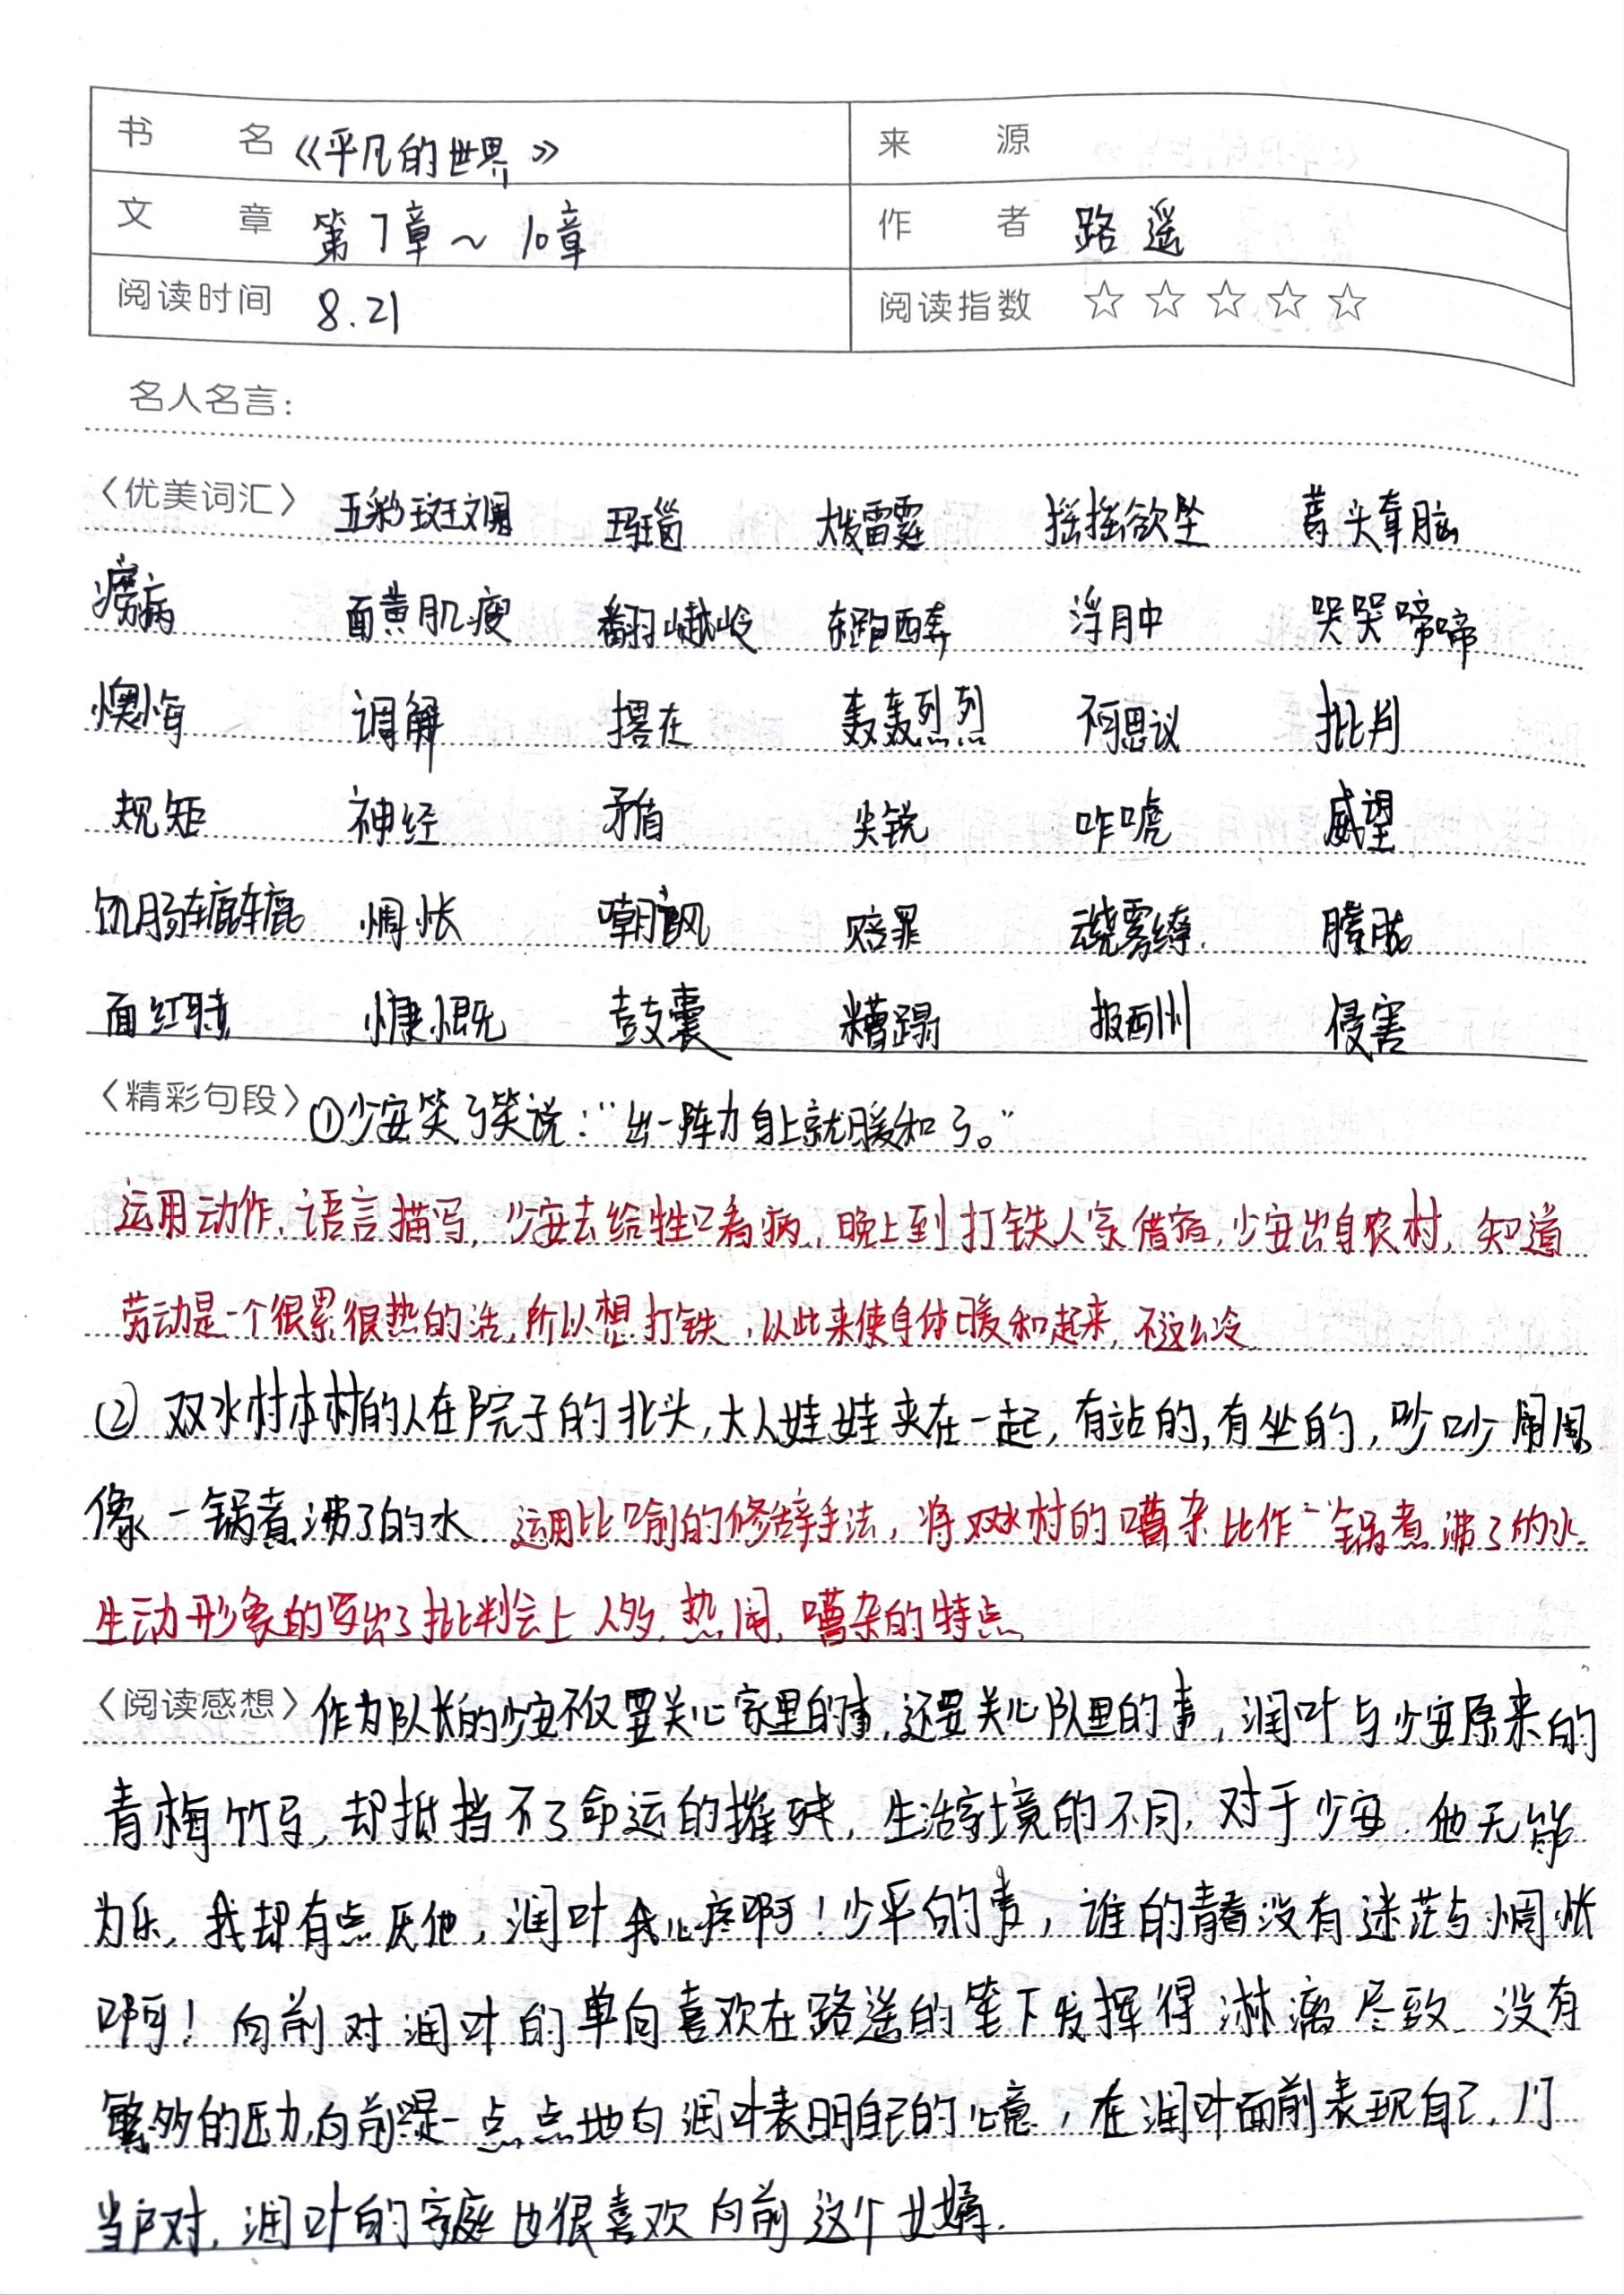 书名 《平凡的世界》 来源
文章 第7章～10章 作者 路遥
阅读时间 8.21 阅读指数 ☆☆☆☆☆
名人名言：
〈优美词汇〉 五彩斑斓 玛瑙 大发雷霆 摇摇欲坠 蔫头耷脑
痨病 面黄肌瘦 翻山越岭 东跑西奔 浮肿 哭哭啼啼
懊悔 调解 撂在 轰轰烈烈 不可思议 批判
规矩 神经 矛盾 尖锐 咋唬 威望
饥肠辘辘 惆怅 嘲讽 赔罪 云雾缭绕 朦胧
面红耳赤 慷慨 鼓囊 糟蹋 报酬 侵害
〈精彩句段〉 ①少安笑了笑说：“出一阵力身上就暖和了。”
运用动作、语言描写，少安去给牲口看病，晚上到打铁人家借宿，少安出身农村，知道
劳动是一个很累很热的活，所以想打铁，以此来使身体暖和起来，不这么冷
② 双水村本村的人在院子的北头，大人娃娃夹在一起，有站的，有坐的，吵吵闹闹
像一锅煮沸了的水 运用比喻的修辞手法，将双水村的嘈杂比作“一锅煮沸了的水
生动形象的写出了批判会上人多，热闹，嘈杂的特点
〈阅读感想〉 作为队长的少安不仅要关心家里的事，还要关心队里的事，润叶与少安原来的
青梅竹马，却抵挡不了命运的摧残，生活家境的不同，对于少安，他无能
为乐，我却有点厌他，润叶我心疼啊！少平的事，谁的青春没有迷茫与惆怅
啊！向前对润叶的单向喜欢在路遥的笔下发挥得淋漓尽致 没有
繁多的压力，向前只是一点点地向润叶表明自己的心意，在润叶面前表现自己，门
当户对，润叶的家庭也很喜欢向前这个女婿.